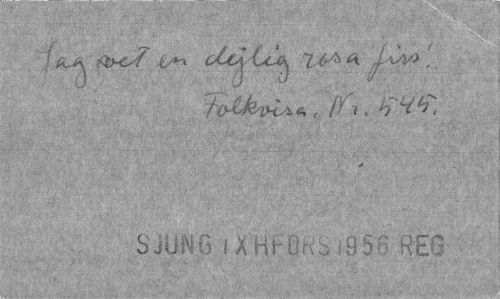 Jag vet en dejlig rosa fiss!
Folkvisa. Nr. 545.
SJUNG IX HFORS 1956 REG